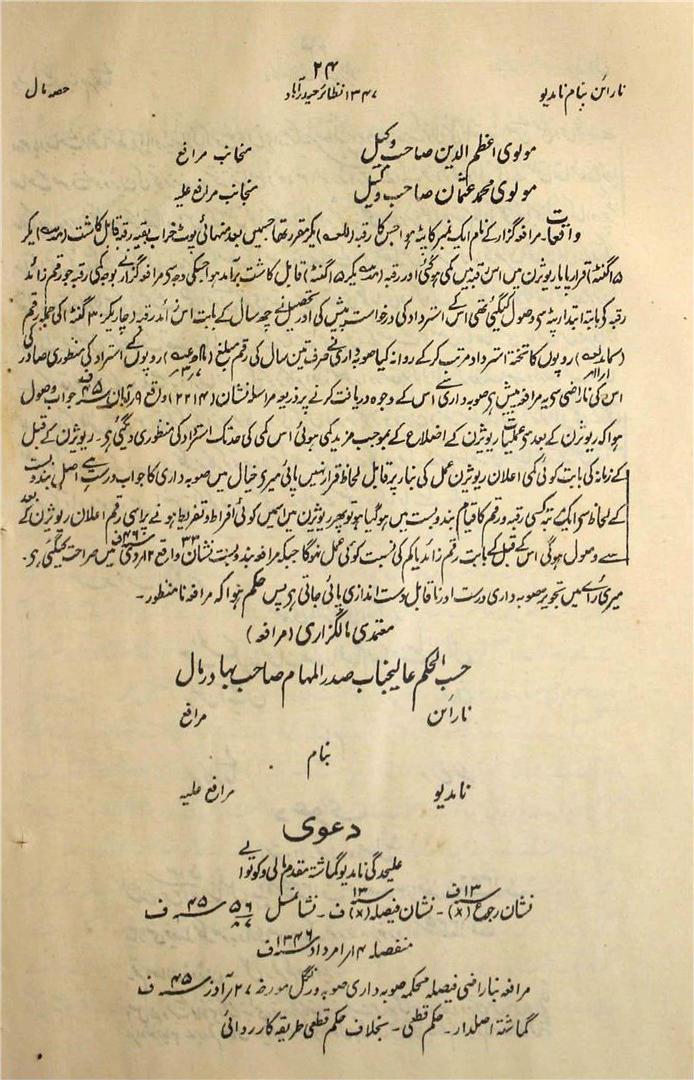 ۲۴
نارائن بنام نامدیو ۱۳۴۷ نظائر حیدرآباد حصہ مال
مولوی اعظم الدین صاحب وکیل منجانب مرافع
مولوی محمد عثمان صاحب وکیل منجانب مرافع علیہ
واقعات۔ مرافعہ گزار کے نام ایک نمبر کا پٹہ ہوا جس کا رقبہ بیگر مقرر تھا جسمیں بعد منہائی پوٹ خراب بقیہ رقبہ قابل کاشت بیگر
۱۵ گنٹہ) قرار پایا ریوژن میں اس رقبہ میں کمی ہوگئی اور رقبہ بیگر ۱۵ گنٹہ) قابل کاشت برآمد ہوا جسکی وجہ سے مرافعہ گزار سے بوجہ کمی رقبہ جو رقم زائد
رقبہ کی بابتہ ابتدا پٹہ سے وصول کیگئی تھی اس کے استرداد کی درخواست پیش کی اور تحصیل نے چھ سال کے بابت اس زائد رقبہ دچار بیگر ۳۰ گنٹہ) کی جملہ رقم
روپوں کا تختہ استرداد مرتب کرکے روانہ کیا صوبہ داری نے صرف تین سال کی رقم مبلغ روپوں کے استرداد کی منظوری صادر کی
اس کی ناراضی سے یہ مرافعہ پیش ہے صوبہ داری سے اس کے وجوہ دریافت کرنے پر ذریعہ مراسلہ نشان (۲۲۱۴) واقع ۹ آبان ۴۵ف جواب وصول
ہوا کہ ریوژن کے بعد سے عملیات ریوژن کے اضلاع کے بموجب مزید کمی ہوئی اس کمی کی حد تک استرداد کی منظوری دیگئی ہے۔ ریوژن کے قبل
کے زمانہ کی بابت کوئی کمی اعلان ریوژن عمل کی بناء پر قابل لحاظ قرار نہیں پائی میری خیال میں صوبہ داری کا جواب درست ہے اصل بندوبست
کے لحاظ سے ایک مرتبہ کسی رقبہ و رقم کا قیام بندوبست میں ہوگیا ہو تو پھر ریوژن میں اسمیں کوئی افراط و تفریط ہونے پر اسی رقم اعلان ریوژن کے بعد
سے وصول ہوگی اس کے قبل کے بابت رقم زائد یا کم کی نسبت کوئی عمل نہوگا جبکہ مرافعہ بندوبست نشان ۳۳ میں صراحت کیگئی ہے۔
میری رائے میں تجویز صوبہ داری درست اور ناقابل دست اندازی پائی جاتی ہے پس حکم ہوا کہ مرافعہ نامنظور۔
معتمدی مالگزاری (مرافعہ)
حسب الحکم عالیجناب صدر المہام صاحب بہادر مال
نارائن مرافع
بنام
نامدیو مرافع علیہ
دعوی
علیحدگی نامدیو گماشتہ مقدم مالی و کوتوالی
نشان رجوع (x) ۱۳ف۔ نشان فیصلہ (x) ۱۳ف۔ نشان مسل ۵۶ ۴۵ف
منفصلہ ۱۴ امرداد ۱۳۴۶ف
مرافعہ بناراضی فیصلہ محکمہ صوبہ داری صوبہ ورنگل مورخہ ۲۷ آذر ۴۵ف
گماشتہ اصلدار۔ حکم قطعی۔ بخلاف حکم قطعی طریقہ کارروائی